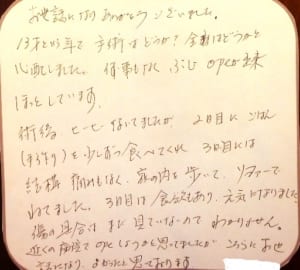 お世話になりありがとうございました。
13才と高令で手術はどうか?全身はどうかと
心配しました。何事もなくぶじopeが出来
ほっとしています。
術後ヒーヒーないてましたが、2日目にごはん
(手づくり)を少しずつ食べてくれ 3日目には
結構痛みもなく、家の内を歩いて、ソファーで
ねてました。3日目は食欲もあり、元気になりました
傷の具合はまだ見ていないのでわかりません。
近くの病院でopeしようと思ってましたが こちらにお世
話になり、よかったと思っております